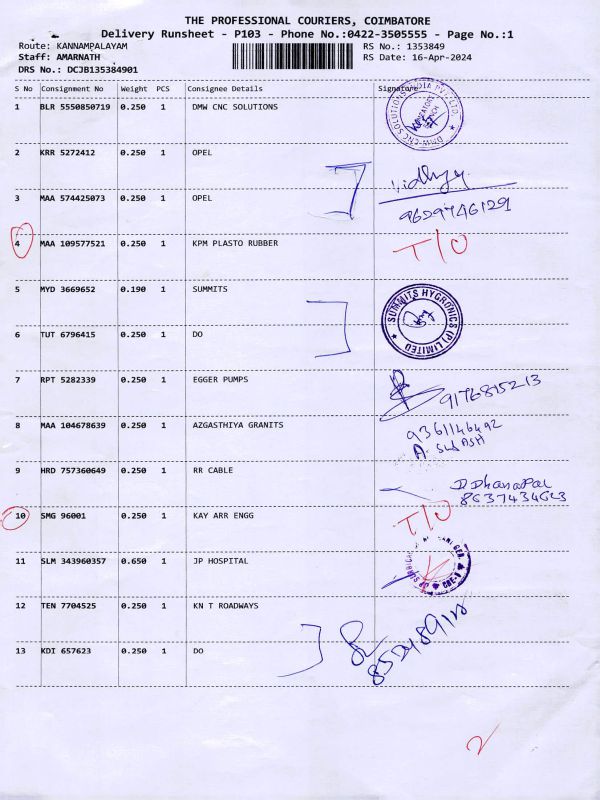 THE PROFESSIONAL COURIERS, COIMBATORE
Delivery Runsheet - P103 - Phone No.:0422-3505555 - Page No.:1
Route: KANNAMPALAYAM RS No.: 1353849
Staff: AMARNATH RS Date: 16-Apr-2024
DRS No.: DCJB135384901
S No Consignment No Weight PCS Consignee Details Signature
1 BLR 5550850719 0.250 1 DMW CNC SOLUTIONS
DMW CNC SOLUTIONS INDIA PVT. LTD.
2 KRR 5272412 0.250 1 OPEL
3 MAA 574425073 0.250 1 OPEL
9629746129
4 MAA 109577521 0.250 1 KPM PLASTO RUBBER T/O
5 MYD 3669652 0.190 1 SUMMITS
SUMMITS HYGRONICS (P) LIMITED
6 TUT 6796415 0.250 1 DO
7 RPT 5282339 0.250 1 EGGER PUMPS 9176815213
8 MAA 104678639 0.250 1 AZGASTHIYA GRANITS 9361146492
9 HRD 757360649 0.250 1 RR CABLE D Dhanapal
10 SMG 96001 0.250 1 KAY ARR ENGG T/O
11 SLM 343960357 0.650 1 JP HOSPITAL
12 TEN 7704525 0.250 1 KN T ROADWAYS
13 KDI 657623 0.250 1 DO
2